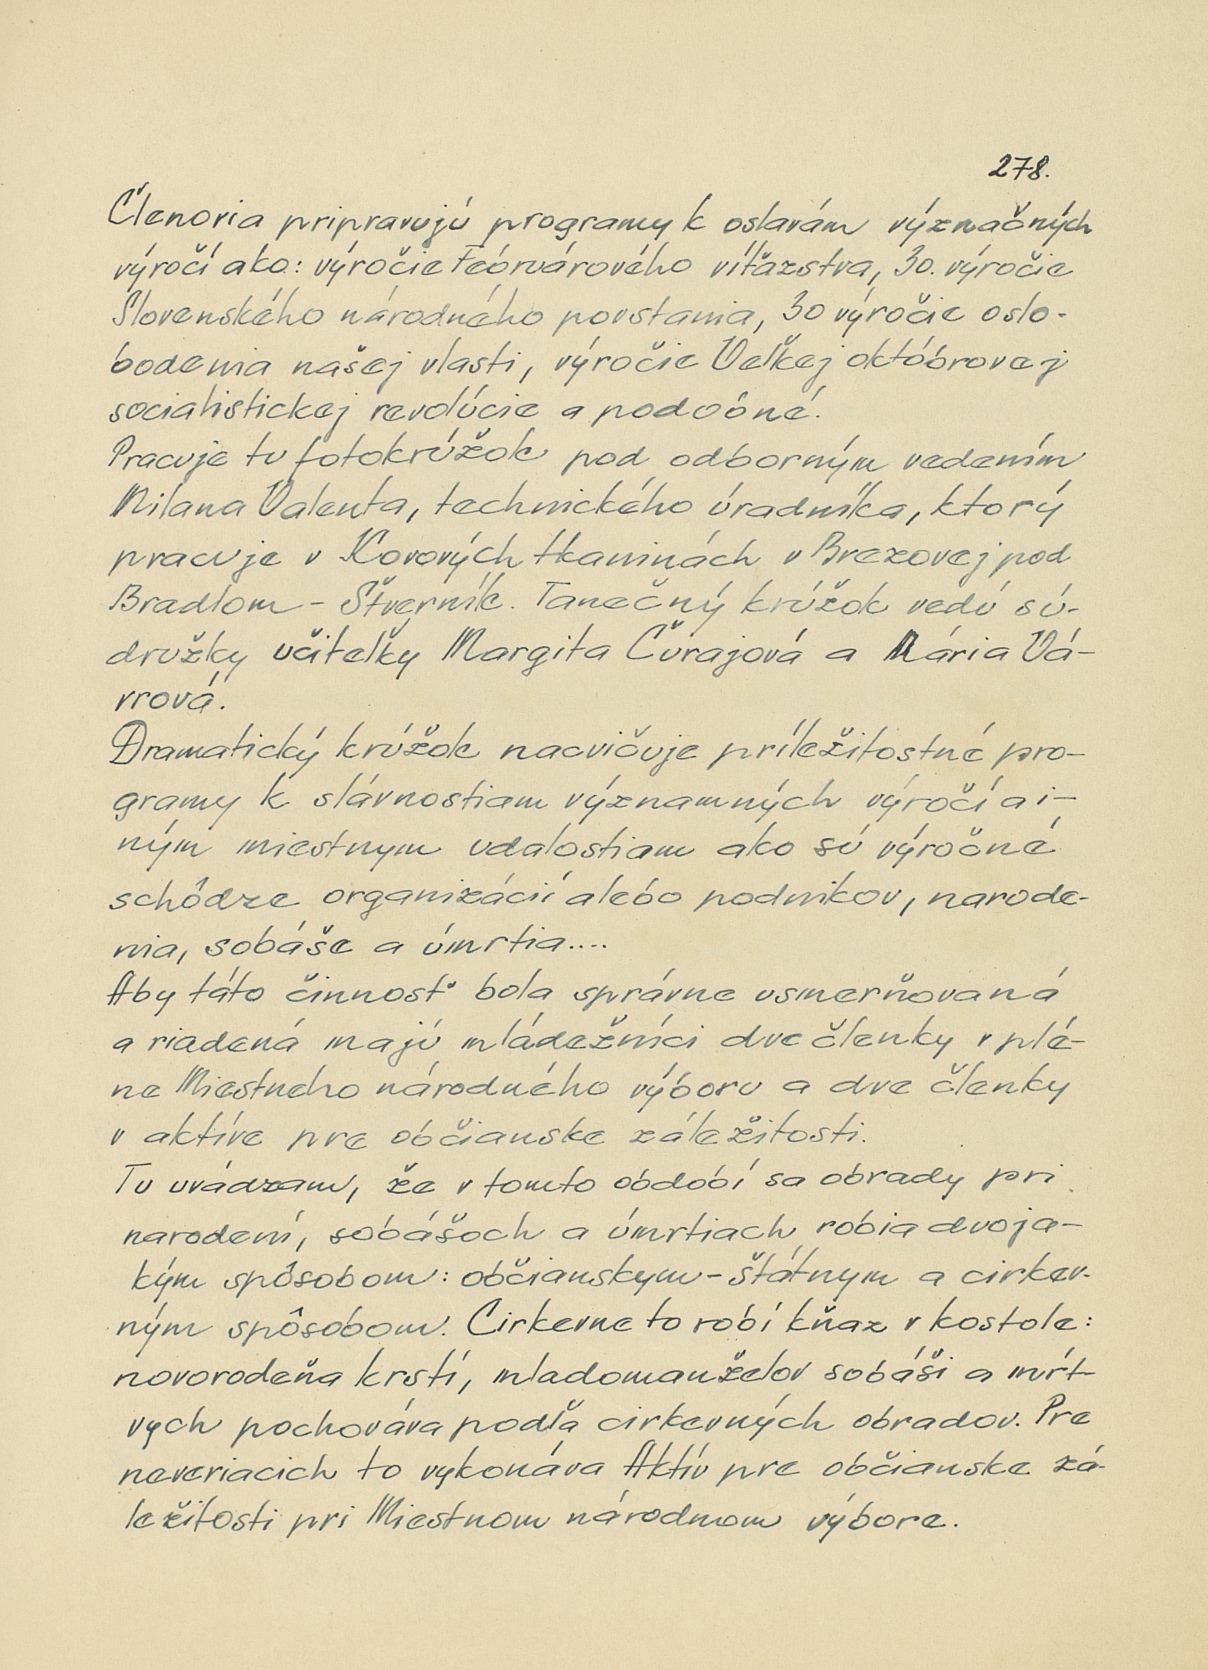 278.
Členovia pripravujú programy k oslavám význačných
výročí ako: výročie Februárového víťazstva, 30. výročie
Slovenského národného povstania, 30 výročie oslo-
bodenia našej vlasti, výročie Veľkej októbrovej
socialistickej revolúcie a podobné.
Pracuje tu fotokrúžok pod odborným vedením
Milana Valenta, technického úradníka, ktorý
pracuje v Kovových tkaninách v Brezovej pod
Bradlom - Štverník. Tanečný krúžok vedú sú-
družky učiteľky Margita Čurajová a Mária Vá-
vrová.
Dramatický krúžok nacvičuje príležitostné pro-
gramy k slávnostiam významných výročí a i-
ným miestnym udalostiam ako sú výročné
schôdze organizácií alebo podnikov, narode-
nia, sobáše a úmrtia....
Aby táto činnosť bola správne usmerňovaná
a riadená majú mládežníci dve členky v plé-
ne Miestneho národného výboru a dve členky
v aktíve pre občianske záležitosti.
Tu uvádzam, že v tomto období sa obrady pri
narodení, sobášoch a úmrtiach robia dvoja-
kým spôsobom: občianskym - štátnym a cirkev-
ným spôsobom. Cirkevne to robí kňaz v kostole:
novorodeňa krstí, mladomanželov sobáši a mŕt-
vych pochováva podľa cirkevných obradov. Pre
neveriacich to vykonáva Aktív pre občianske zá-
ležitosti pri Miestnom národnom výbore.